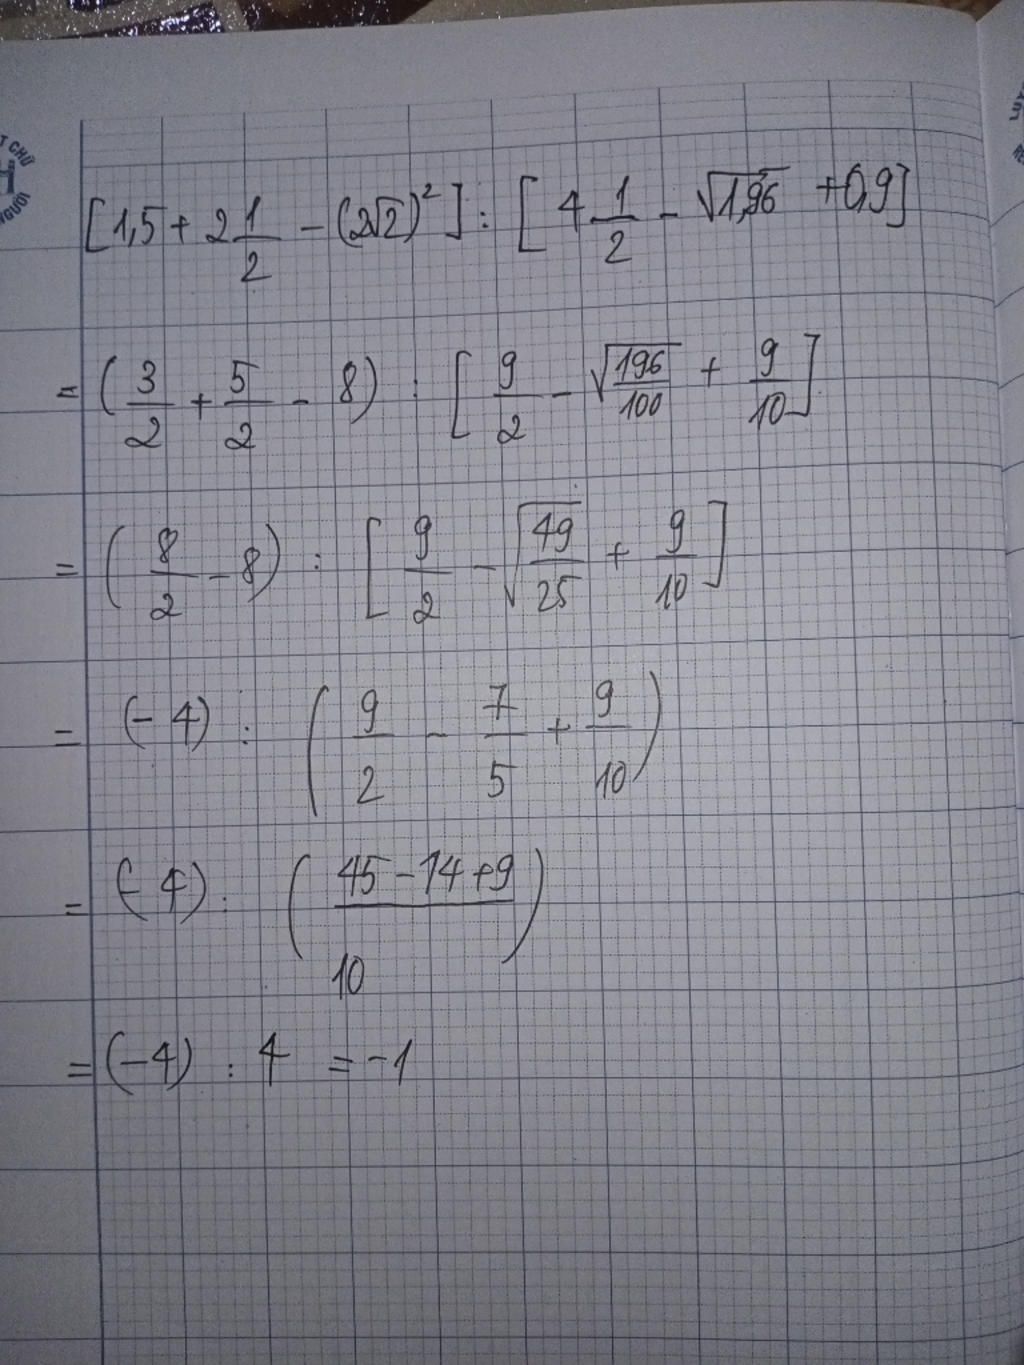 [1,5 + 2 1/2 - (2√2)²] : [4 1/2 - √1,96 + 0,9]
= (3/2 + 5/2 - 8) : [9/2 - √196/100 + 9/10]
= (8/2 - 8) : [9/2 - √49/25 + 9/10]
= (-4) : (9/2 - 7/5 + 9/10)
= (-4) : (45 - 14 + 9/10)
= (-4) : 4 = -1